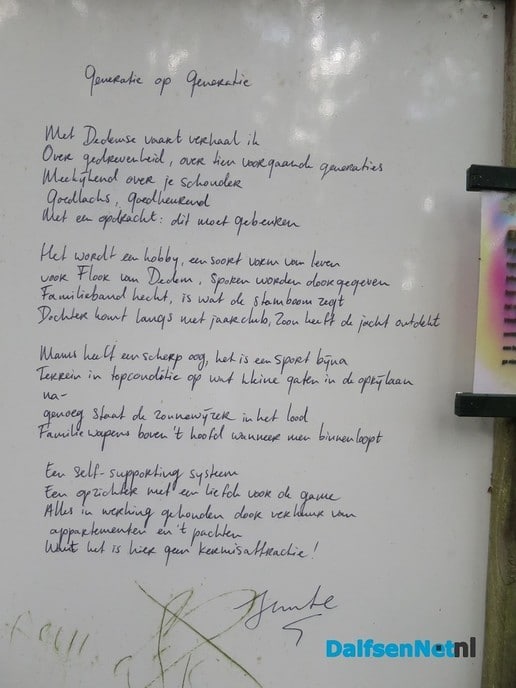 Generatie op Generatie
Met Dedemse vaart verhaal ik
Over gedrevenheid, over tien voorgaande generaties
Meekijkend over je schouder
Goedlachs, goedkeurend
Met een opdracht: dit moet gebeuren
Het wordt een hobby, een soort vorm van leven
voor Floor van Dedem, spoken worden doorgegeven
Familieband hecht, is wat de stamboom zegt
Dochter komt langs met jaarclub, zoon heeft de jacht ontdekt
Manus heeft een scherp oog, het is een sport bijna
Terrein in topconditie op wat kleine gaten in de oprijlaan
na-
genoeg staat de zonnewijzer in het lood
Familie wapens boven 't hoofd wanneer men binnenloopt
Een self-supporting systeem
Een opzichter met een liefde voor de game
Alles in werking gehouden door verhuur van
appartementen en 't pachten
Want het is hier geen kermisattractie!
DalfsenNet.nl